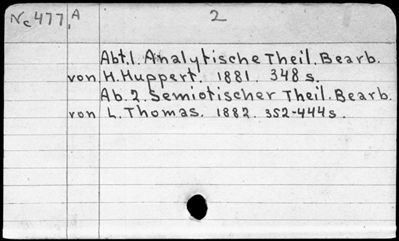 Nc477,A 2
Abt.1. Analytische Theil. Bearb.
von H. Huppert. 1881. 348 s.
Ab. 2. Semiotischer Theil. Bearb.
von L. Thomas. 1882. 352-444s.